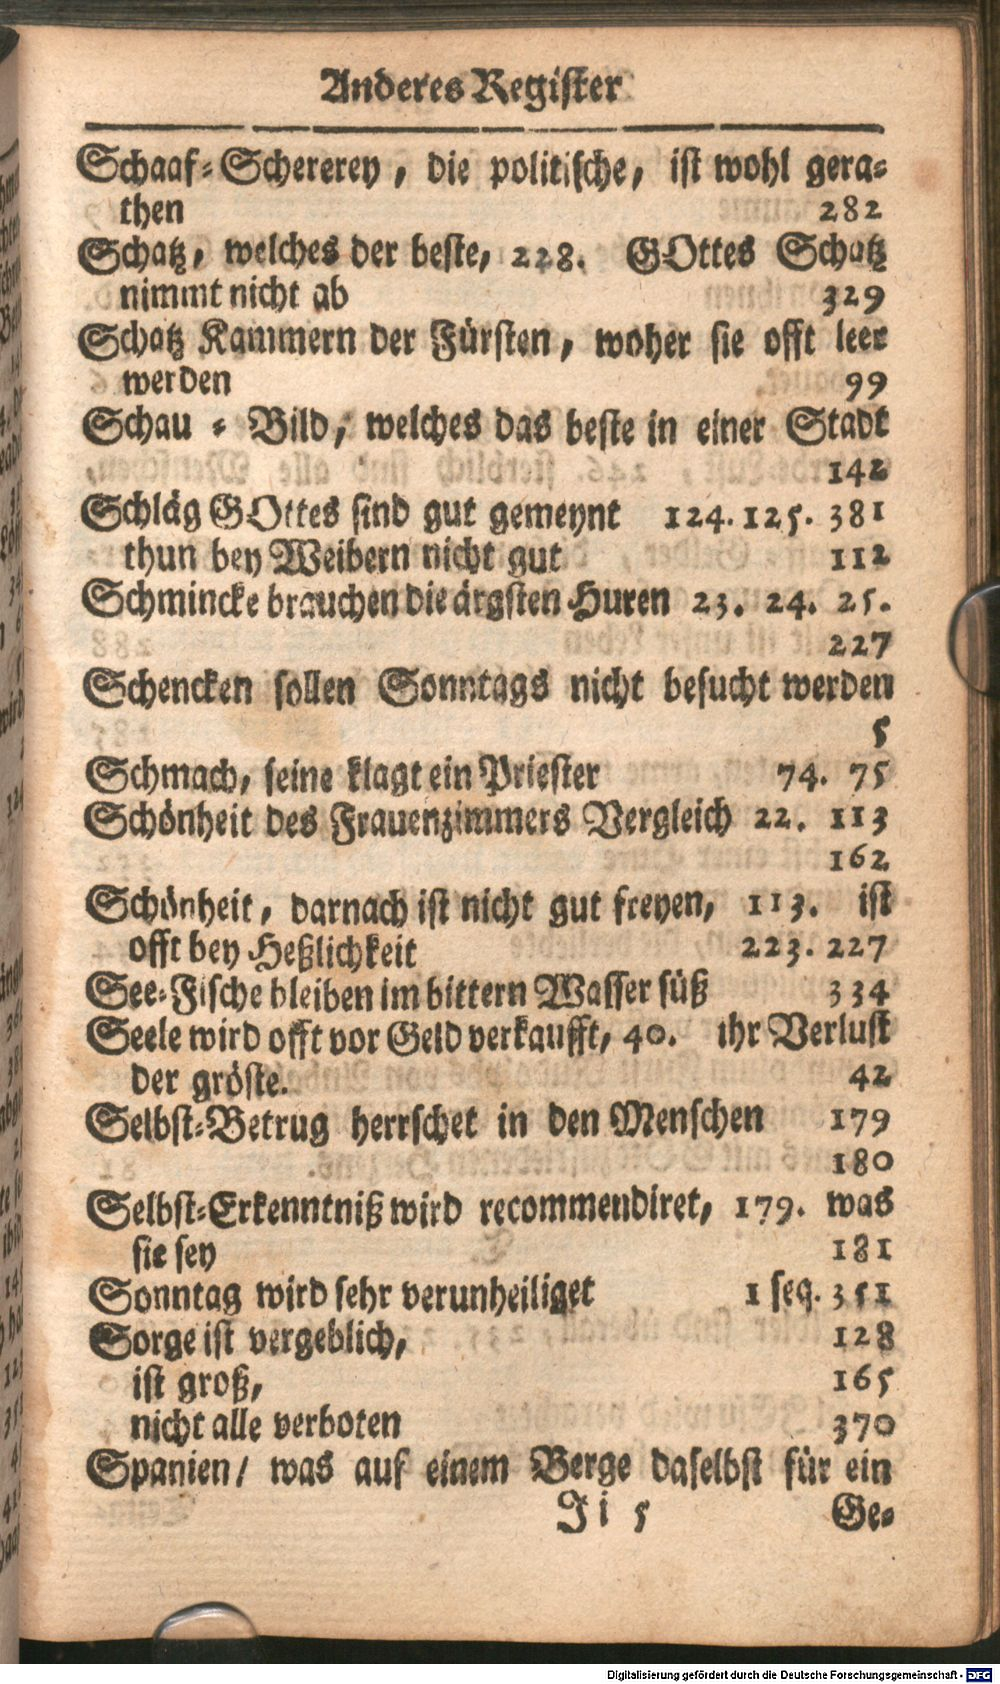 Anderes Register
Schaaf-Schererey, die politische, ist wohl gera-
then 282
Schatz, welches der beste, 228. GOttes Schatz
nimmt nicht ab 329
Schatz Kammern der Fürsten, woher sie offt leer
werden 99
Schau-Bild, welches das beste in einer Stadt
142
Schläg GOttes sind gut gemeynt 124. 125. 381
thun bey Weibern nicht gut 112
Schmincke brauchen die ärgsten Huren 23. 24. 25.
227
Schencken sollen Sonntags nicht besucht werden
5
Schmach, seine klagt ein Priester 74. 75
Schönheit des Frauenzimmers Vergleich 22. 113
162
Schönheit, darnach ist nicht gut freyen, 113. ist
offt bey Heßlichkeit 223. 227
See-Fische bleiben im bittern Wasser süß 334
Seele wird offt vor Geld verkaufft, 40. ihr Verlust
der gröste. 42
Selbst-Betrug herrschet in den Menschen 179
180
Selbst-Erkenntniß wird recommendiret, 179. was
sie sey 181
Sonntag wird sehr verunheiliget 1 seq. 351
Sorge ist vergeblich, 128
ist groß, 165
nicht alle verboten 370
Spanien/ was auf einem Berge daselbst für ein
Jii 5 Ge-
Digitalisierung gefördert durch die Deutsche Forschungsgemeinschaft - DFG